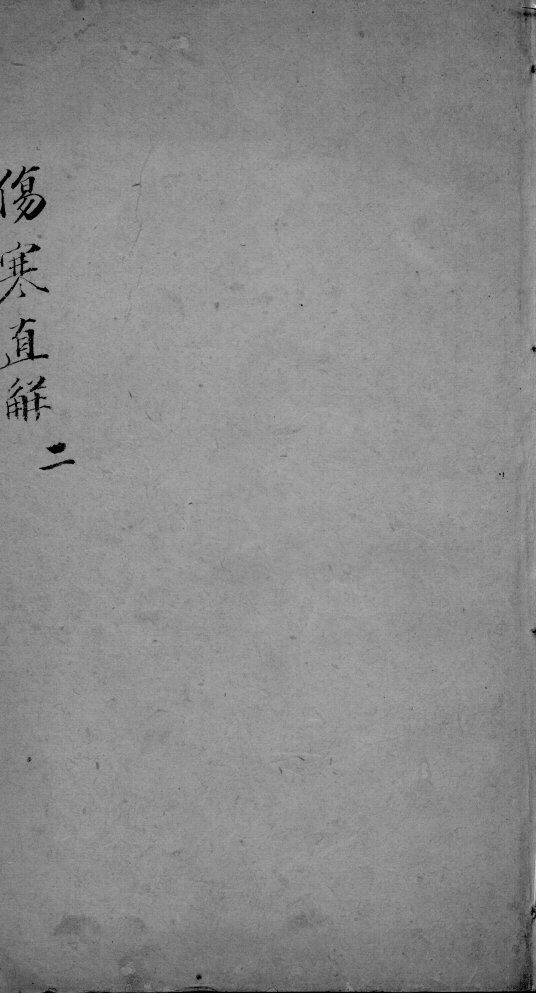 傷寒直解
二